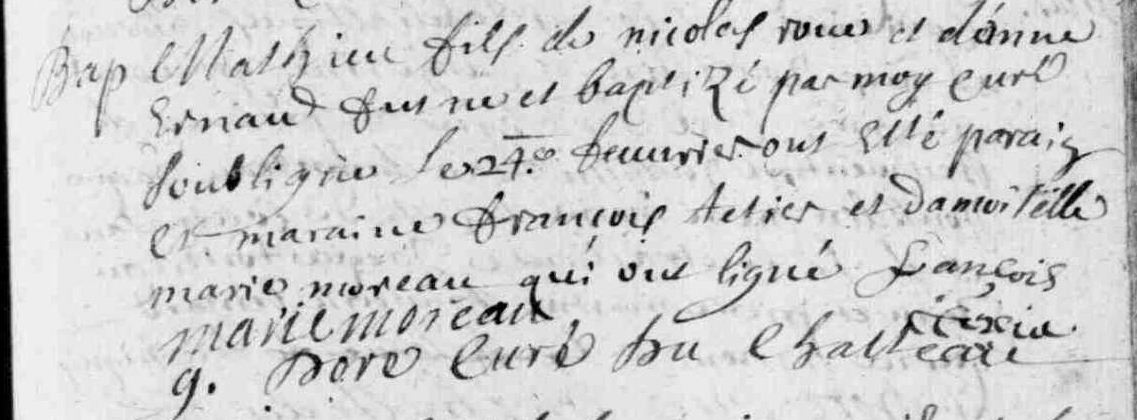 Bap Mathieu fils de nicolas roux et d'anne
Ernaud fut ne et baptizé par moy curé
soubsigne le 24e feuurier ont esté parain
et maraine françois tetier et damoiselle
marie moreau qui ont signé françois
marie moreau
g. curé du Chasteau